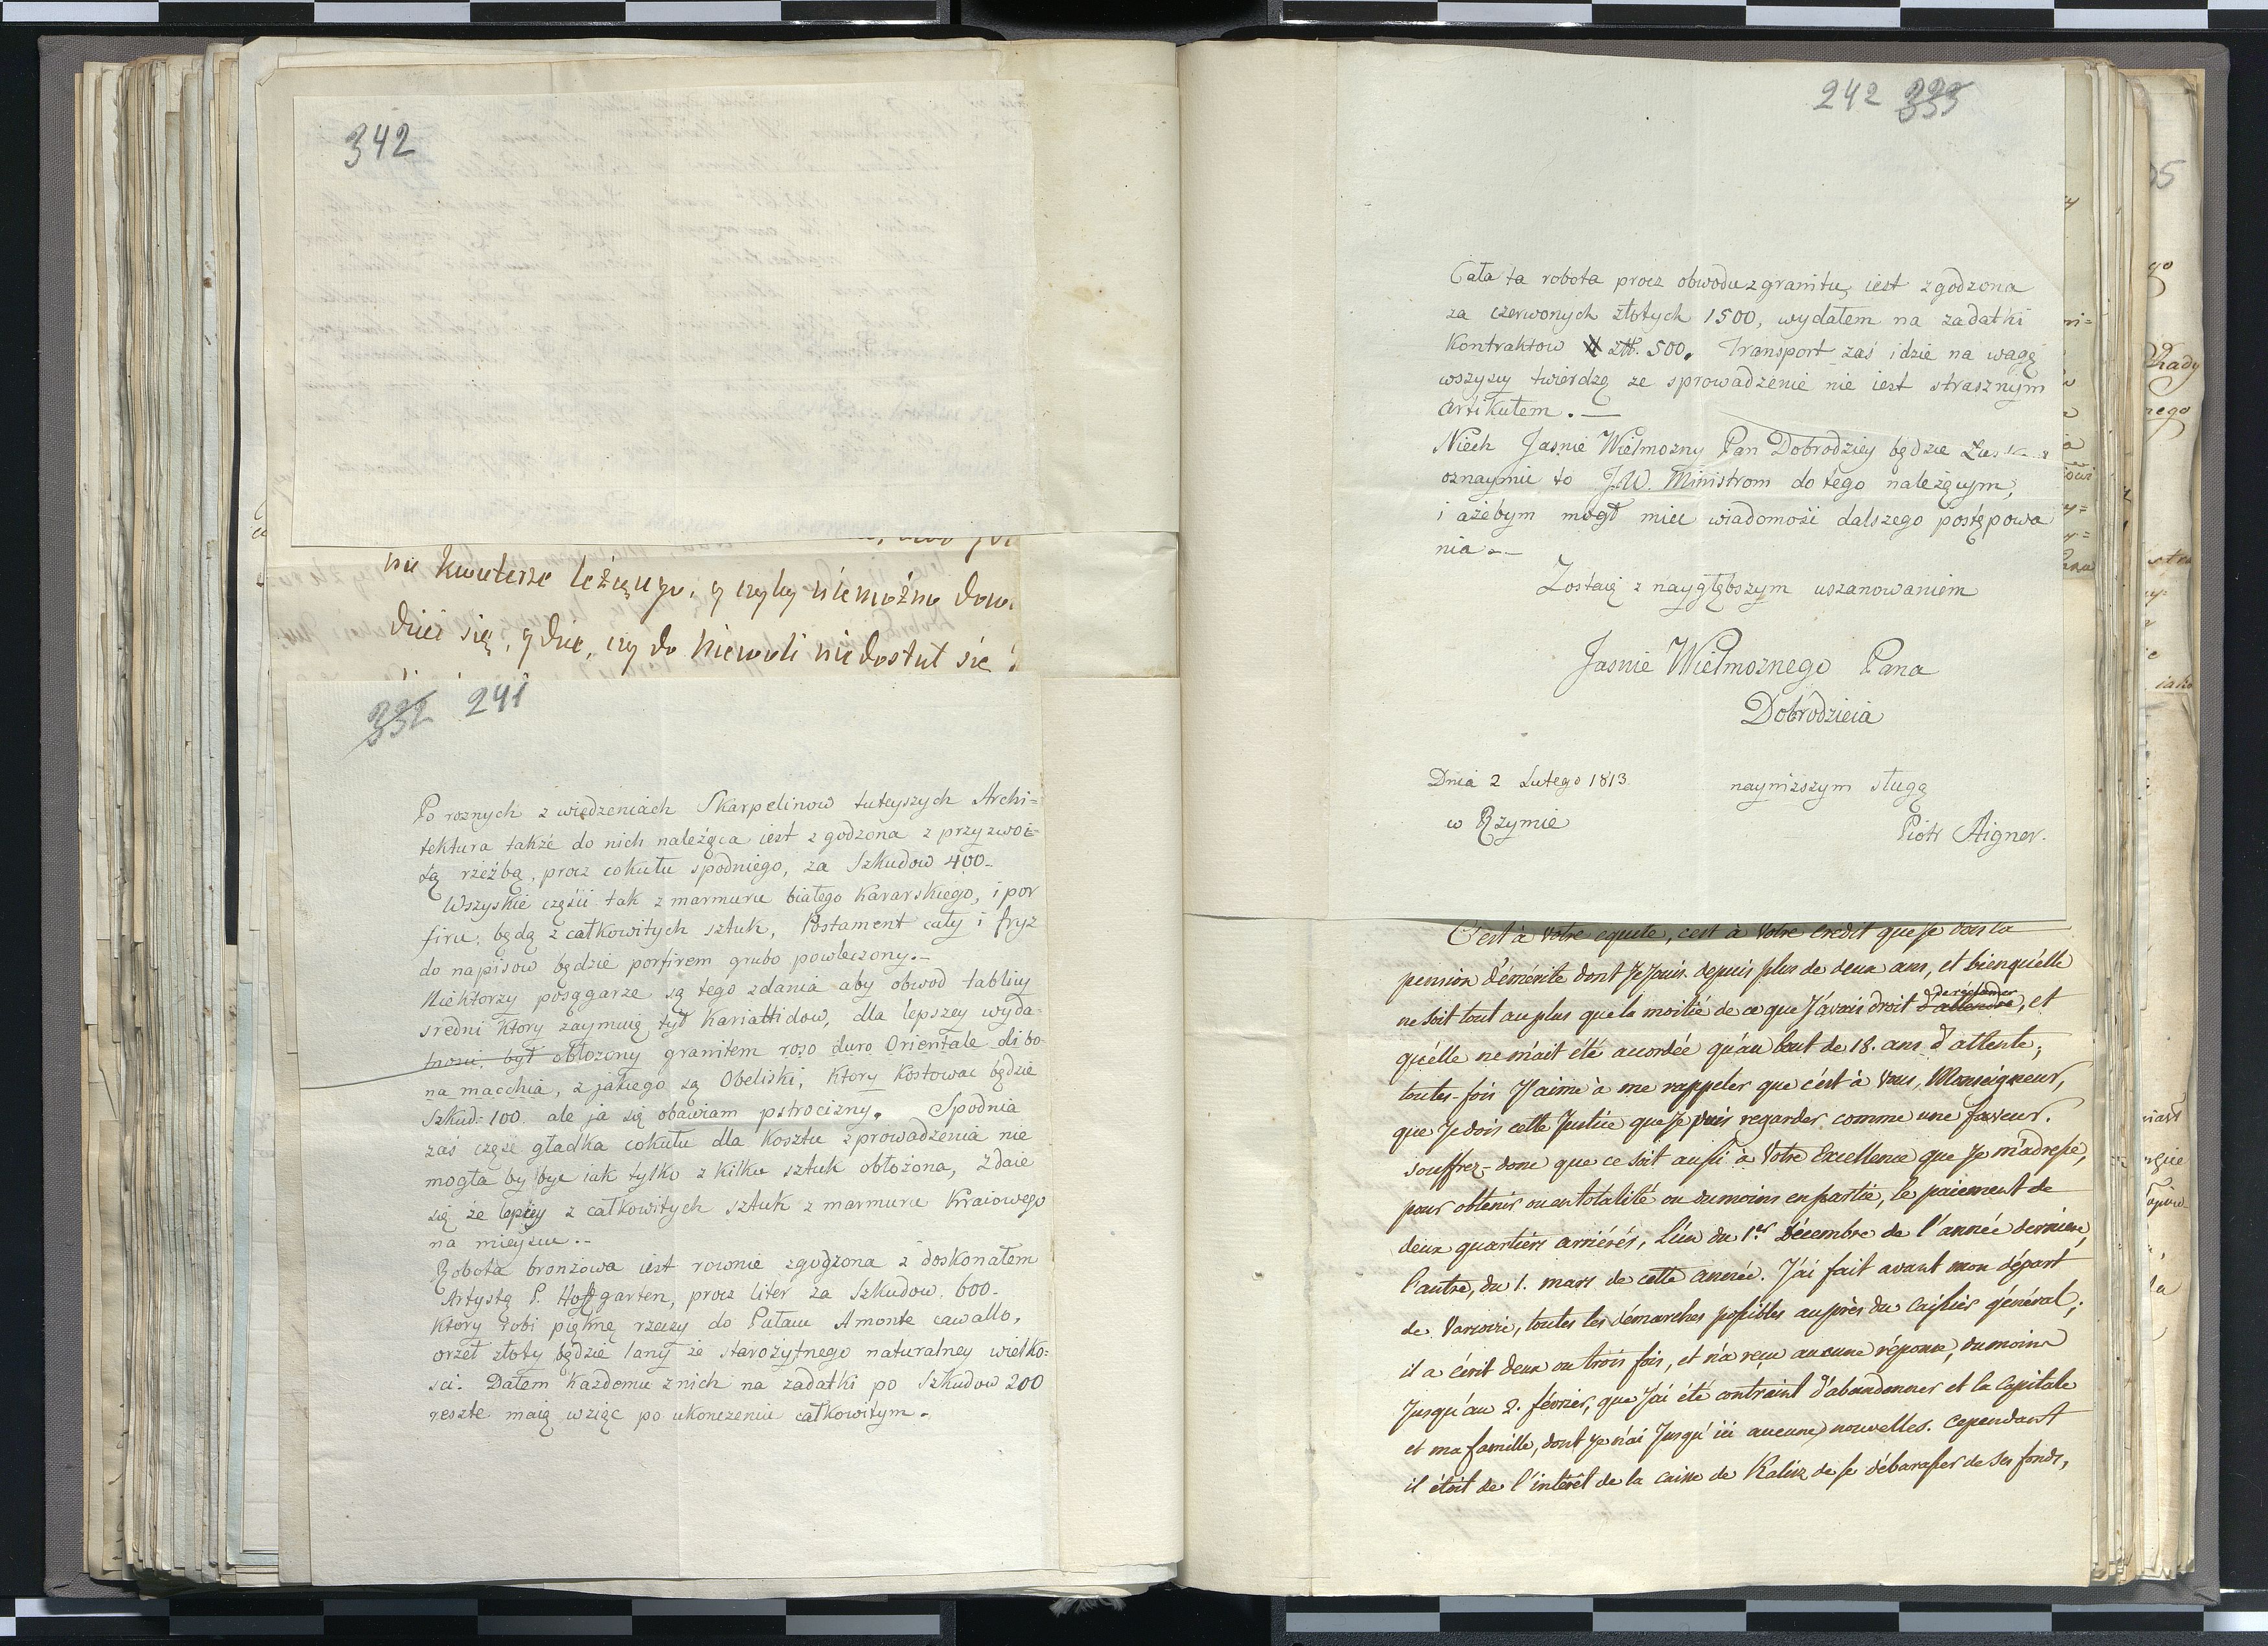 342
na kwaterze leżącego, y czyby niemożna dowie
dzieć się, gdzie, czy do niewoli niedostał się
332 241
Po roznych zwiedzeniach Skarpelinow tuteyszych Archi=
tektura także do nich należąca iest zgodzona z przyzwoi=
tą rzeźbą, procz cokułu spodniego, za Szkudow 400.
Wszyskie części tak z marmuru białego Kararskiego, i por
firu, będą z całkowitych sztuk, Postament cały i fryz
do napisow będzie porfirem grubo powleczony.
Niektorzy posągarze są tego zdania aby obwod tablicy
sredni ktory zaymuią tył Kariattidow, dla lepszey wyda-
tnosci, był obłozony granitem roso duro Orientale di bo-
na macchia, z jakiego są Obeliski, ktory kostowac będzie
Szkud: 100. ale ja się obawiam pstrocizny. Spodnia
zaś częśc gładka cokułu dla kosztu sprowadzenia nie
mogła by byc iak tylko z kilku sztuk obłożona, Zdaie
się że lepiey z całkowitych sztuk z marmuru Kraiowego
na mieyscu.
Robota bronzowa iest rownie zgodzona z doskonałem
Artystą P. Hofgarten, procz liter za Szkudow. 600.
ktory robi piękne rzeczy do Pałacu Amonte cawallo,
orzeł złoty będzie lany ze starożytnego naturalney wielko=
sci. Dałem każdemu z nich na zadatki po Szkudow 200
reszte maią wziąc po ukonczeniu całkowitym.
242 333
Cała ta robota procz obwodu z granitu, iest zgodzona
za czerwonych złotych 1500, wydałem na zadatki
Kontraktow złł. 500. Transport zaś idzie na wagę
wszyscy twierdzą ze sprowadzenie nie iest strasznym
artikułem.
Niech Jasnie Wielmozny Pan Dobrodziey będzie
oznaymic to J.W. Ministrom do tego należącym,
i ażebym mogł miec wiadomośi dalszego postępowa
nia
Zostaię z naygłębszym uszanowaniem
Jasnie Wielmoznego Pana
Dobrodzieia
Dnia 2 Lutego 1813.
nayniższym sługą
w Rzymie
Piotr Aigner.
C'est à votre equite, c'est à Votre credit que je dois la
pension d'émérite dont je jouis depuis plus de deux ans, et bien qu'elle
ne soit tout au plus que la moitié de ce que j'avais droit d'attendre de réclamer, et
qu'elle ne m'ait été accordée qu'au bout de 18. ans d'attente,
toutes-fois j'aime à me rappeler que c'est à Vous, Monseigneur,
que je dois cette justice que je puis regarder comme une faveur.
souffrez-donc que ce soit aussi à Votre Excellence que je m'adresse,
pour obtenir ou en totalité ou dumoins en partie, le paiement de
deux quartiers arriérés, l'un du 1er Décembre de l'année dernière,
l'autre, du 1. mars de cette année. J'ai fait avant mon départ
de Varsovie, toutes les démarches possibles auprès du Caissier général,
il a écrit deux ou trois fois, et n'a reçu aucune réponse, dumoins
jusqu'au 2. février, que j'ai été contraint d'abandonner et la Capitale
et ma famille, dont je n'ai jusqu'ici aucunes nouvelles. Cependant
il étoit de l'intérêt de la caisse de Kalisz de se débarasser de ses fonds,